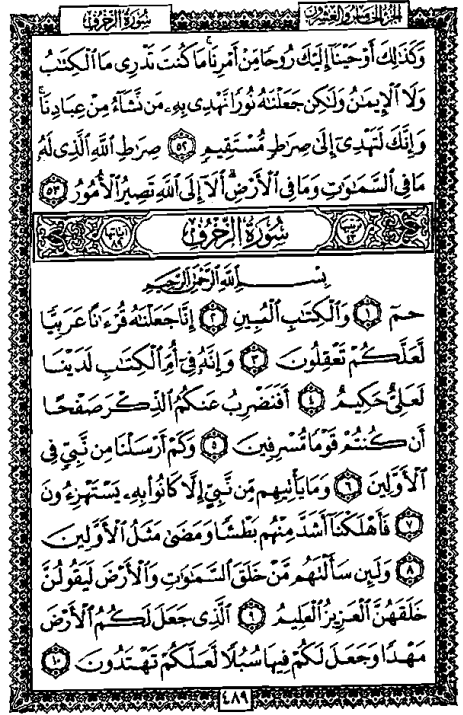 سُورَةُ الزُّخْرُفِ الجُزءُ الخَامِسُ وَالعِشْرُونَ
وَكَذَٰلِكَ أَوْحَيْنَآ إِلَيْكَ رُوحًا مِّنْ أَمْرِنَا مَا كُنتَ تَدْرِى مَا الْكِتَٰبُ
وَلَا الْإِيمَٰنُ وَلَٰكِن جَعَلْنَٰهُ نُورًا نَّهْدِى بِهِۦ مَن نَّشَآءُ مِنْ عِبَادِنَا
وَإِنَّكَ لَتَهْدِىٓ إِلَىٰ صِرَٰطٍ مُّسْتَقِيمٍ ٥٢ صِرَٰطِ اللَّهِ الَّذِى لَهُۥ
مَا فِى السَّمَٰوَٰتِ وَمَا فِى الْأَرْضِ أَلَآ إِلَى اللَّهِ تَصِيرُ الْأُمُورُ ٥٣
ترتيبها ٤٣ سُورَةُ الزُّخْرُفِ آياتها ٨٩
بِسْمِ اللَّهِ الرَّحْمَٰنِ الرَّحِيمِ
حمٓ ١ وَالْكِتَٰبِ الْمُبِينِ ٢ إِنَّا جَعَلْنَٰهُ قُرْءَٰنًا عَرَبِيًّا
لَّعَلَّكُمْ تَعْقِلُونَ ٣ وَإِنَّهُۥ فِىٓ أُمِّ الْكِتَٰبِ لَدَيْنَا
لَعَلِىٌّ حَكِيمٌ ٤ أَفَنَضْرِبُ عَنكُمُ الذِّكْرَ صَفْحًا
أَن كُنتُمْ قَوْمًا مُّسْرِفِينَ ٥ وَكَمْ أَرْسَلْنَا مِن نَّبِىٍّ فِى
الْأَوَّلِينَ ٦ وَمَا يَأْتِيهِم مِّن نَّبِىٍّ إِلَّا كَانُوا بِهِۦ يَسْتَهْزِءُونَ
٧ فَأَهْلَكْنَآ أَشَدَّ مِنْهُم بَطْشًا وَمَضَىٰ مَثَلُ الْأَوَّلِينَ
٨ وَلَئِن سَأَلْتَهُم مَّنْ خَلَقَ السَّمَٰوَٰتِ وَالْأَرْضَ لَيَقُولُنَّ
خَلَقَهُنَّ الْعَزِيزُ الْعَلِيمُ ٩ الَّذِى جَعَلَ لَكُمُ الْأَرْضَ
مَهْدًا وَجَعَلَ لَكُمْ فِيهَا سُبُلًا لَّعَلَّكُمْ تَهْتَدُونَ ١٠
٤٨٩